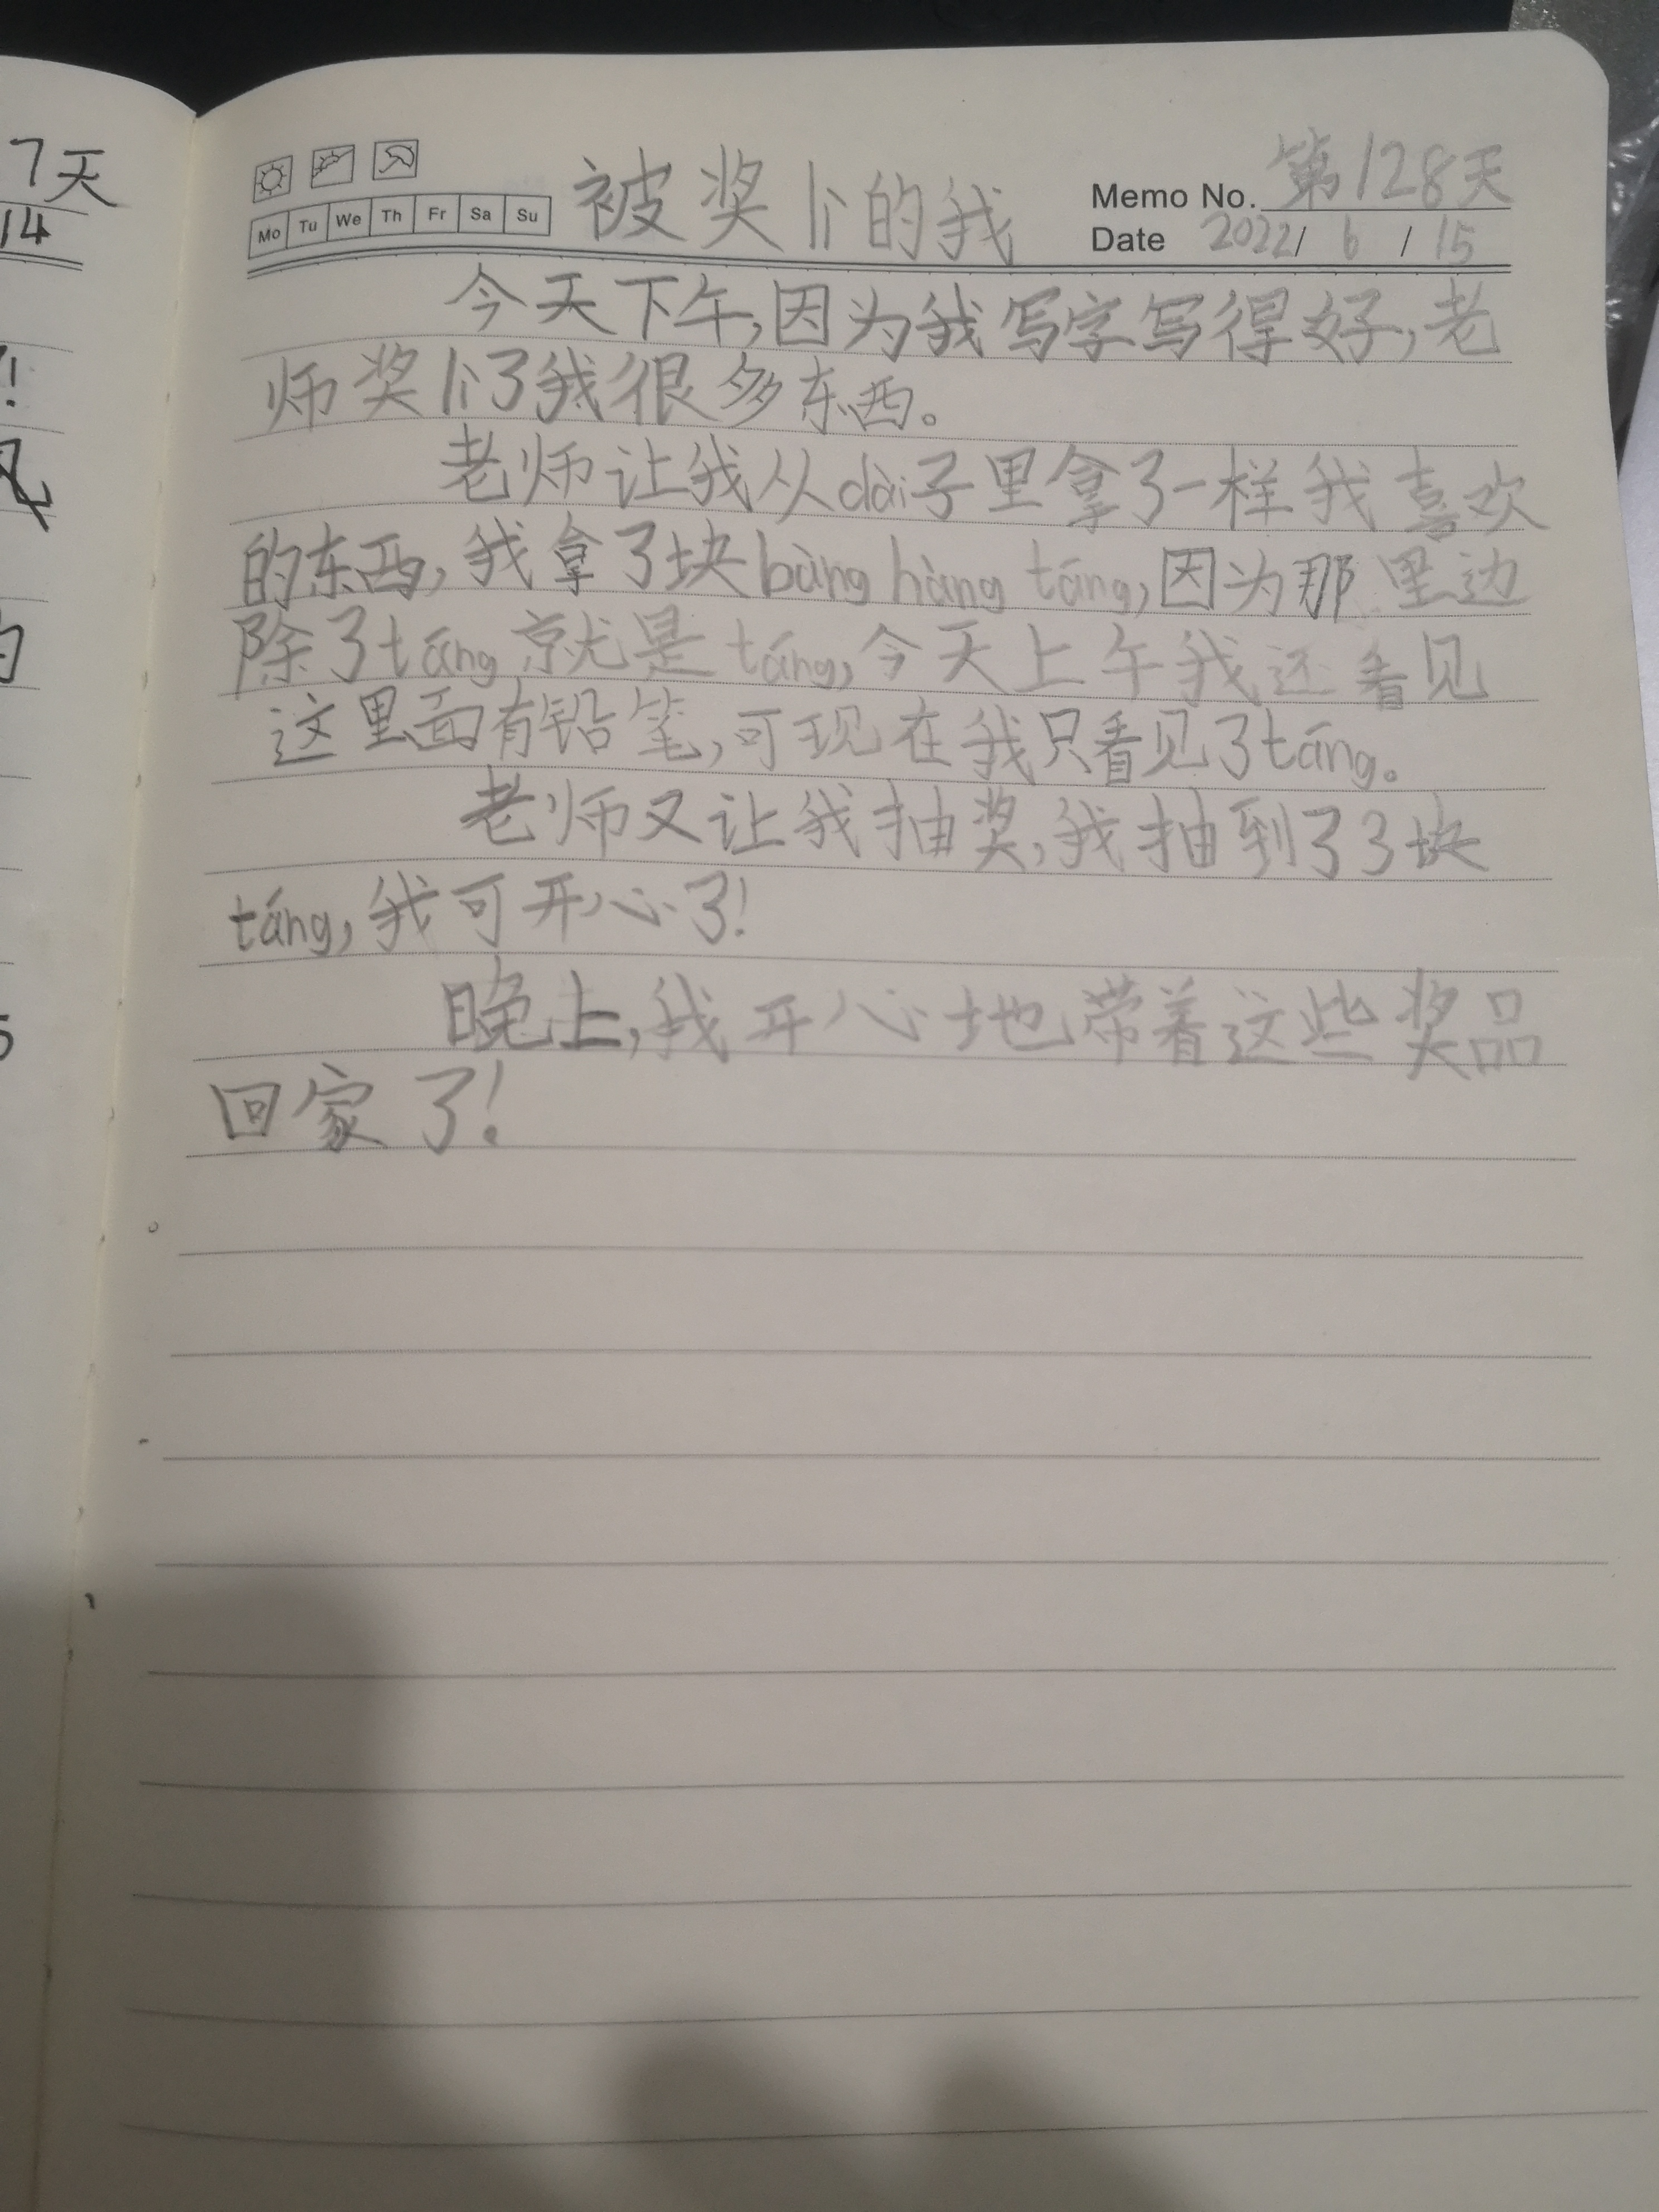 7天
14
!
风
的
5
Mo Tu We Th Fr Sa Su
被奖的我
Memo No. 第128天
Date 2022/ 6 / 15
今天下午,因为我写字写得好,老
师奖了我很多东西。
老师让我从dài子里拿了一样我喜欢
的东西,我拿了块bàng bàng táng,因为那里边
除了táng就是táng,今天上午我还看见
这里面有铅笔,可现在我只看见了táng。
老师又让我抽奖,我抽到了3块
táng,我可开心了!
晚上,我开心地带着这些奖品
回家了!